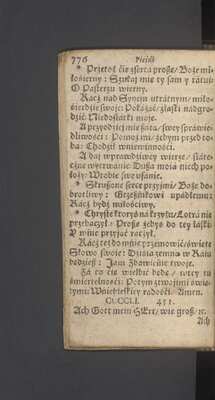 776 Pieśń
* Przetoż cię żsercá proszę/ Boże mi-
łosierny: Szukaj mię ty sam y rátuj
O Pásterzu wierny.
Rácż nád Synem utrátnym/ miło-
sierdzie swoje: Pokázáć/ złáski nadgro-
dzić Niedostátki moje.
A przyodziej mię szátą/ swey spráwie-
dliwości: Pomoż mi/ żebym przed to-
bą: Chodził wniewinności.
A daj wprawdziwey wierze/ státe-
czne wytrwánie: Duszá mojá niech po-
łoży/ Wtobie swe ufánie.
* Skruszone serce przyimi/ Boże do-
brotliwy: Grzesznikowi upádłemu:
Rácż bydź miłościwy.
* Chryste ktoryś ná krzyżu/ Lotrá nie
przebaczył: Proszę żebyś do tey łáski
Y mnie przyjąć rácżył.
Rácż też do mnie przemowić/ święte
Słowo swoje: Dzisia zemną w Ráiu
będziesz: Jam Zbáwienie twoje.
Zá to cię wielbić będę/ wtey tu
śmiertelności: Potym z twojimi świę-
tymi: Wniebieskiey rádości. Amen.
CCCCLI. 451.
Ach Gott mein HErr/ wie groß/ ꝛc.
Ach